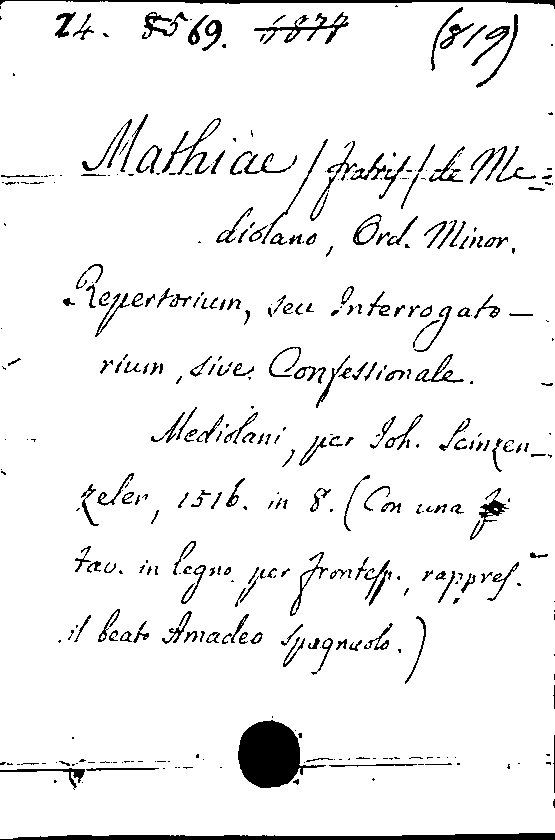 24. 8569. 6877 (819)
Mathiae / fratris / de Me=
diolano, Ord. Minor.
Repertorium, seu Interrogato-
rium, sive Confessionale.
Mediolani, per Joh. Scinzen-
zeler, 1516. in 8. (Con una
tav. in legno per frontesp., rappres.
il beato Amadeo spagnuolo.)